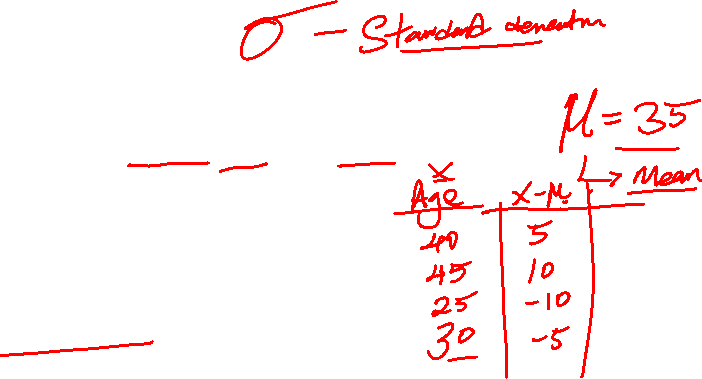 σ - Standard deviation
μ = 35
→ Mean
x
Age x-μ
40 5
45 10
25 -10
30 -5